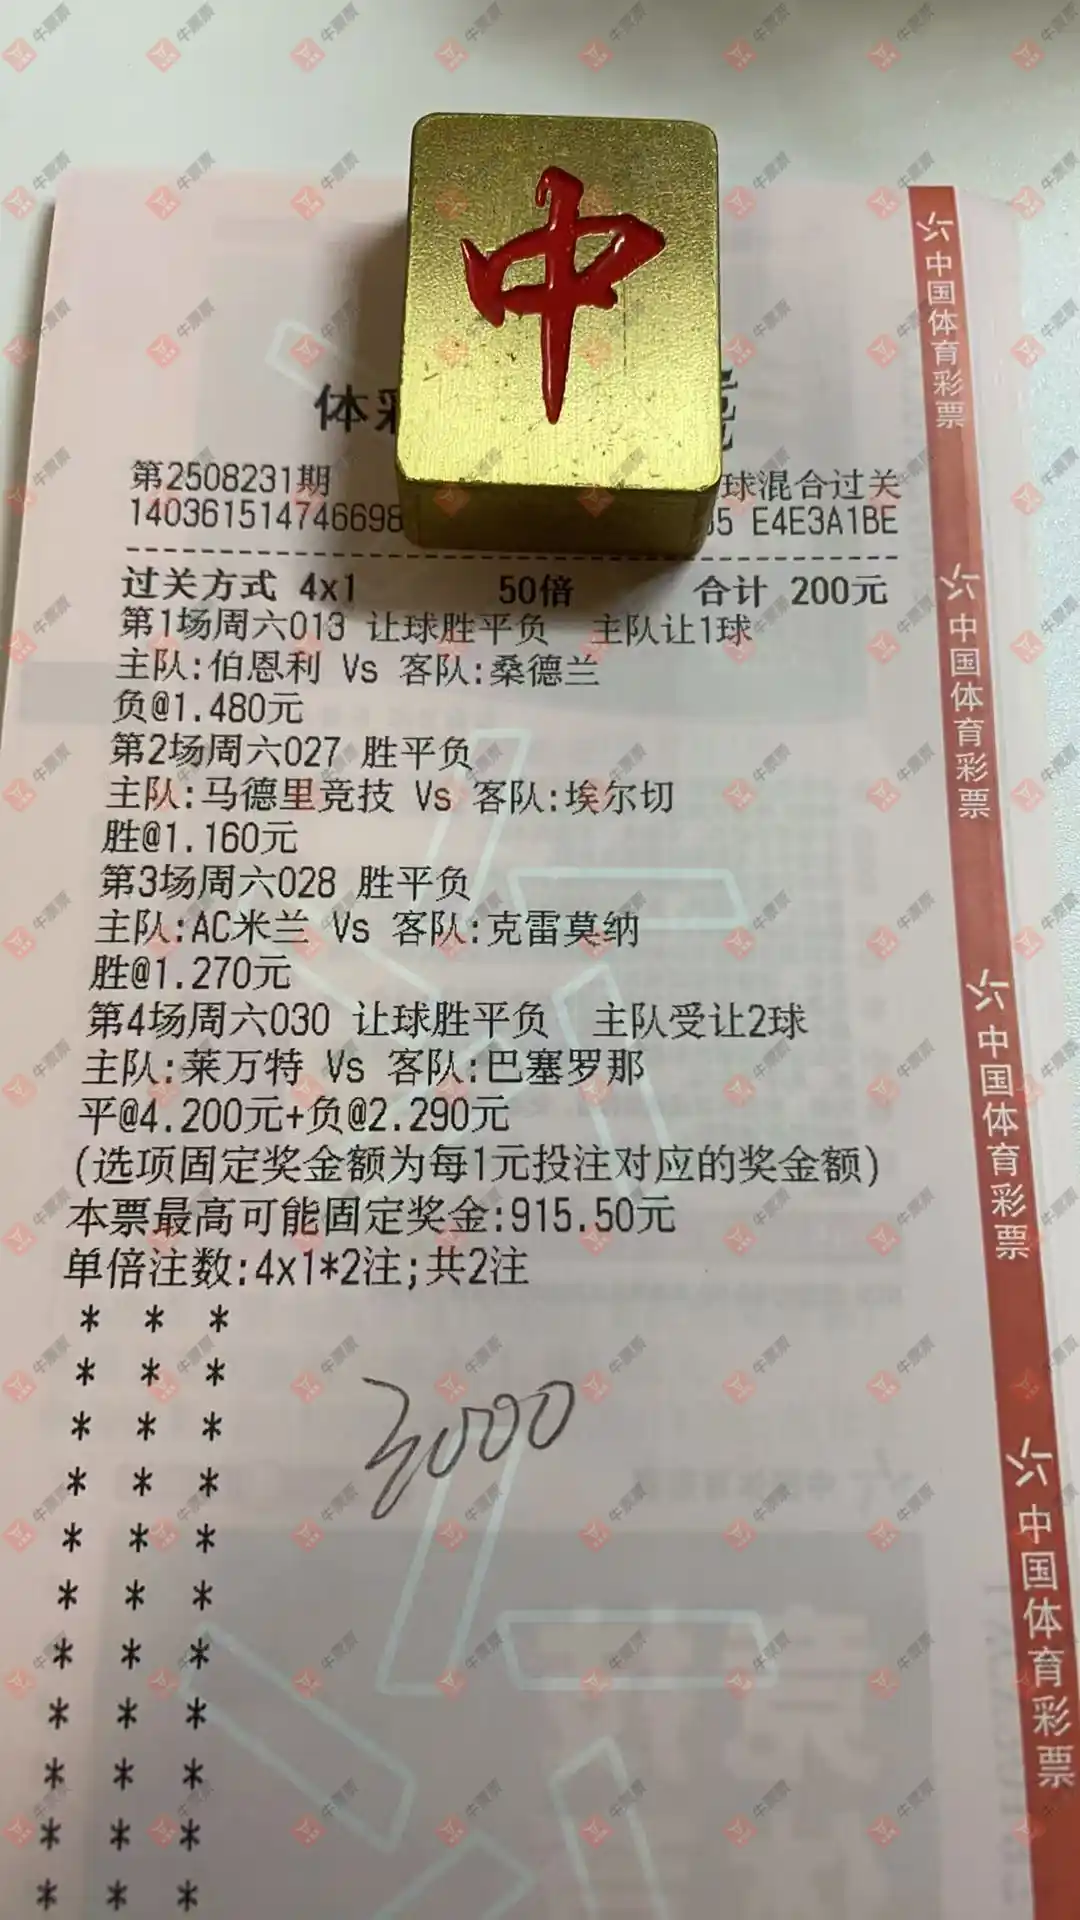 中
体彩
第2508231期
球混合过关
140361514746698
05 E4E3A1BE
过关方式 4x1 50倍 合计 200元
第1场周六013 让球胜平负 主队让1球
主队:伯恩利 Vs 客队:桑德兰
负@1.480元
第2场周六027 胜平负
主队:马德里竞技 Vs 客队:埃尔切
胜@1.160元
第3场周六028 胜平负
主队:AC米兰 Vs 客队:克雷莫纳
胜@1.270元
第4场周六030 让球胜平负 主队受让2球
主队:莱万特 Vs 客队:巴塞罗那
平@4.200元+负@2.290元
(选项固定奖金额为每1元投注对应的奖金额)
本票最高可能固定奖金:915.50元
单倍注数:4x1*2注;共2注
* * *
* * *
* * *
* * *
* * *
* * *
* * *
* * *
* * *
* * *
* * *
3000
中国体育彩票
中国体育彩票
中国体育彩票
中国体育彩票
牛票票